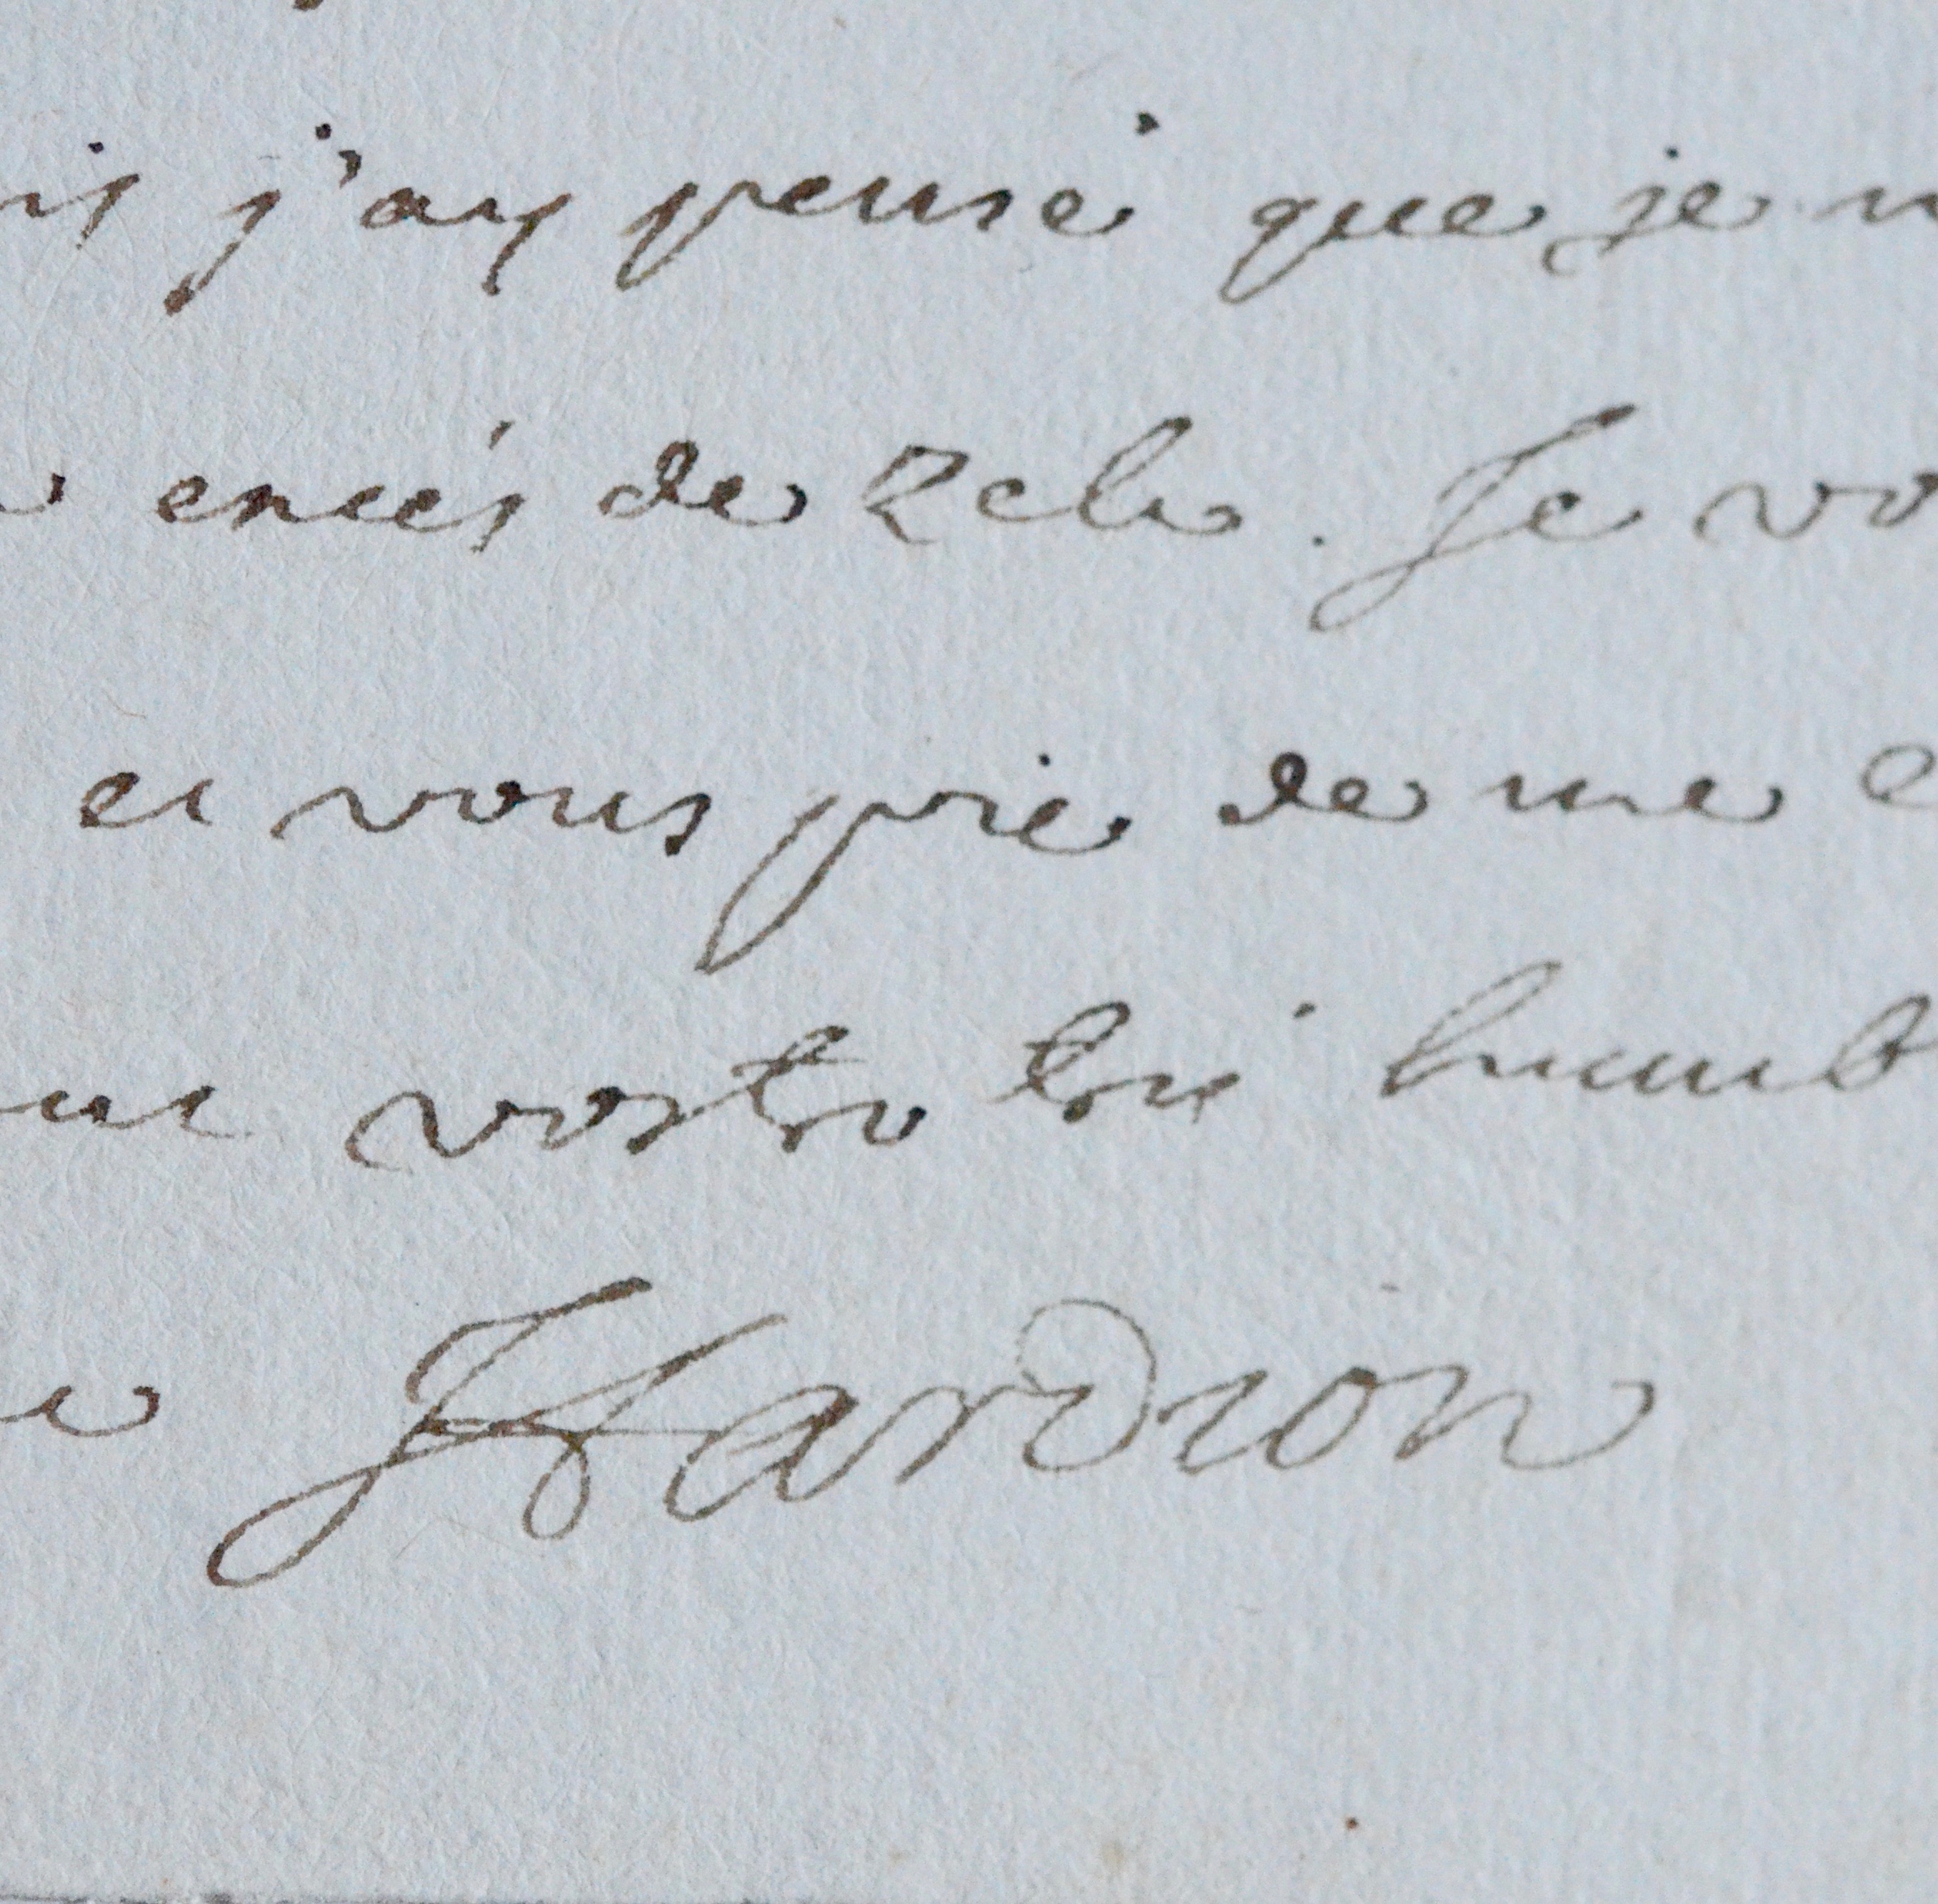 j'ay pensé que je
excés de Zele. Je vo
et vous prie de me
vostre tres humb
Hardion